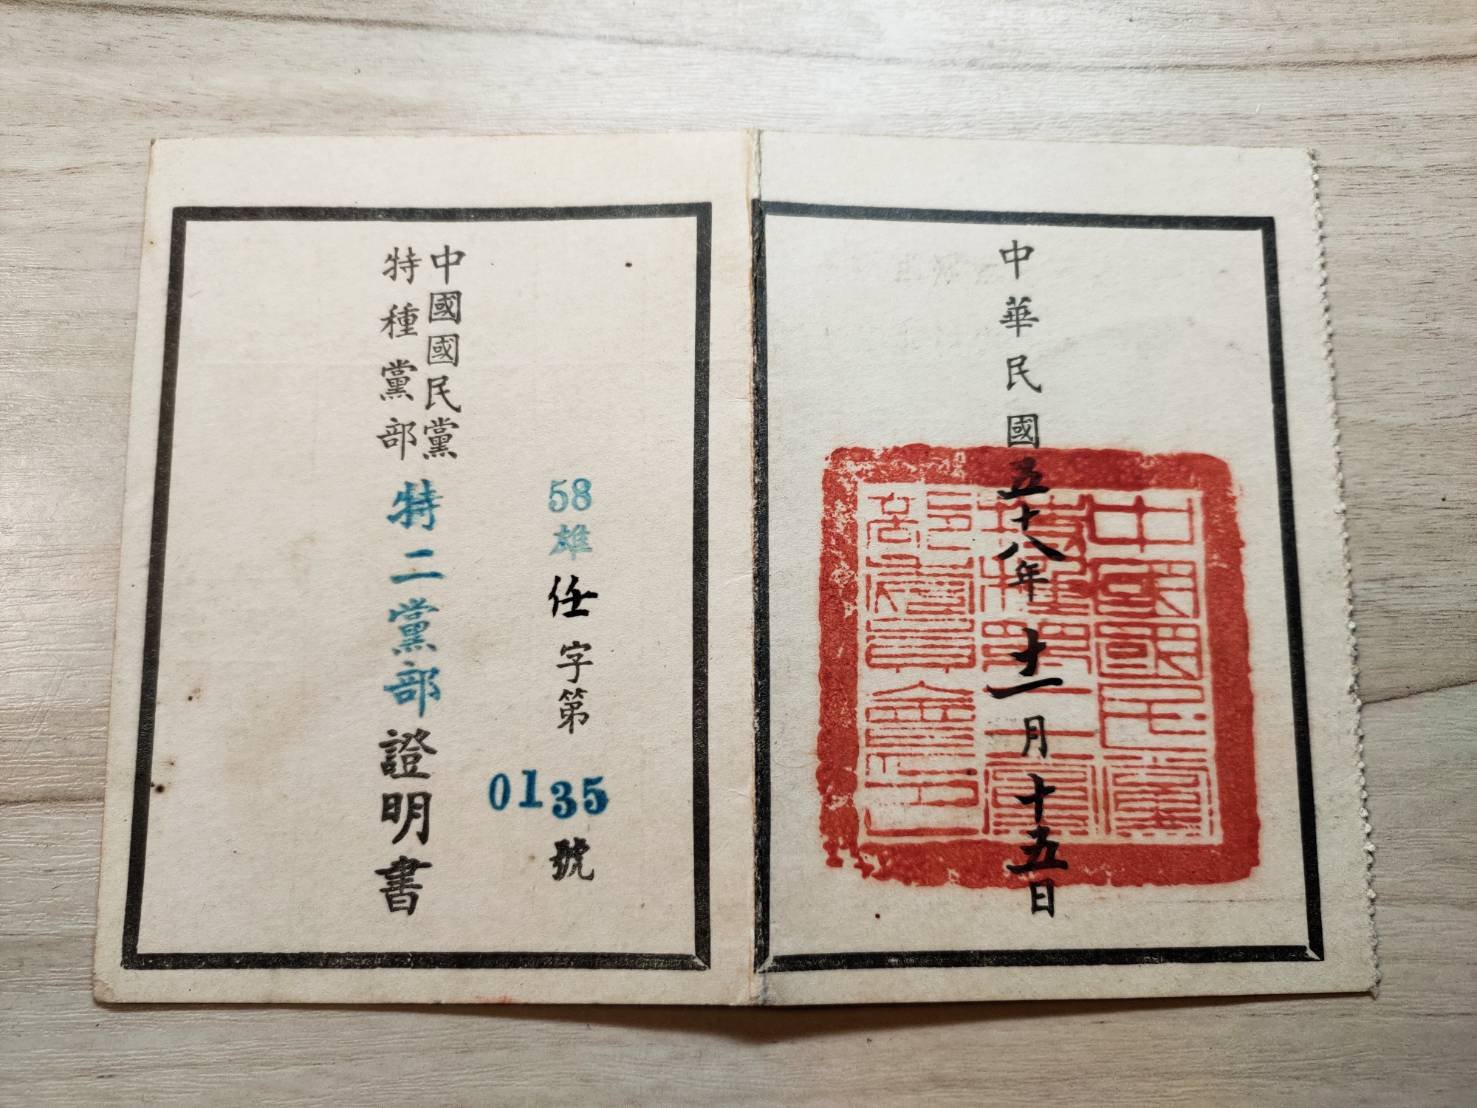 中華民國五十八年十一月十五日
中國國民黨
特種第二黨
部委員會印
58雄任字第0135號
中國國民黨
特種黨部
特二黨部證明書